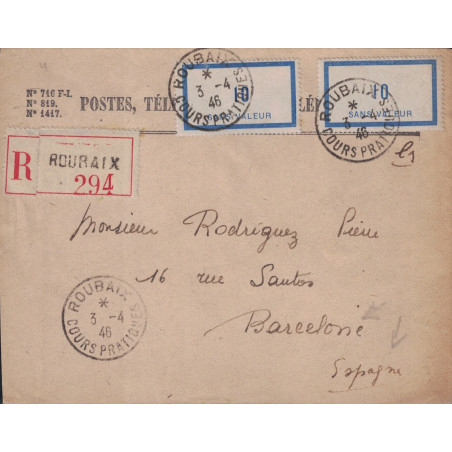 Nº 716 F-I.
Nº 819.
Nº 1417.
POSTES, TÉL
SANS VALEUR
10
SANS VALEUR
ROUBAIX
*
3 -4
46
COURS PRATIQUES
ROUBAIX
*
3 -4
46
COURS PRATIQUES
R
ROUBAIX
294
Monsieur Rodriguez Pierre
16 rue Santos
Barcelone
Espagne
ROUBAIX
*
3 -4
46
COURS PRATIQUES